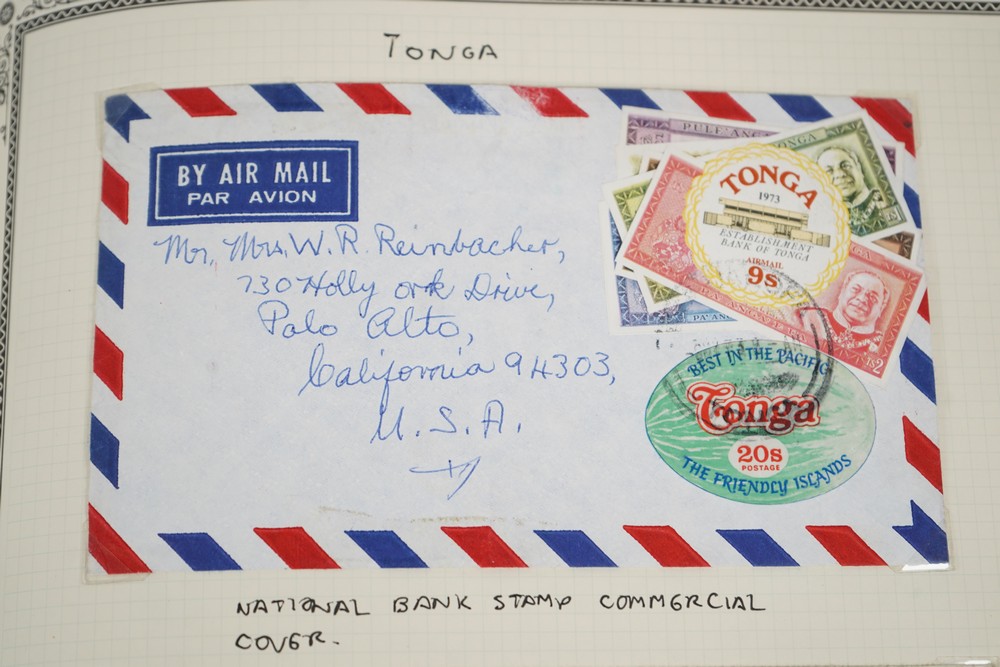 TONGA
BY AIR MAIL
PAR AVION
Mr, Mrs. W. R. Reinbacher,
730 Holly oak Drive,
Palo Alto,
California 94303,
U. S. A.
PULE'ANGA
TONGA
TONGA
1973
ESTABLISHMENT
BANK OF TONGA
AIRMAIL
9s
T$2
BEST IN THE PACIFIC
Tonga
20s
POSTAGE
THE FRIENDLY ISLANDS
NATIONAL BANK STAMP COMMERCIAL
COVER.